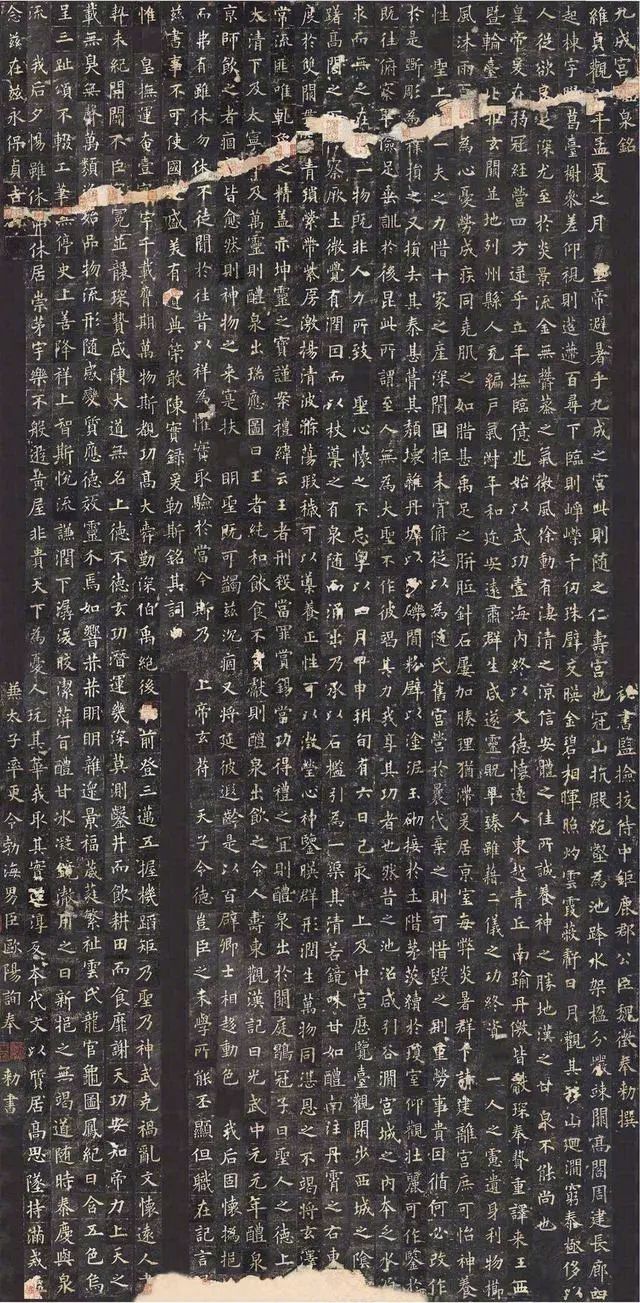 九成宮泉銘 書監檢挍侍中鉅鹿郡公臣魏徵奉勅撰
維貞觀年孟夏之月 皇帝避暑乎九成之宮此則隨之仁壽宮也冠山抗殿絕壑為池跨水架楹分巖竦闕高閣周建長廊四
起棟宇葛臺榭參差仰視則迢遰百尋下臨則崢嶸千仞珠璧交暎金碧相暉照灼雲霞蔽虧日月觀其移山迴澗窮泰極侈以
人從欲良足深尤至於炎景流金無鬱蒸之氣微風徐動有淒清之涼信安體之佳所誠養神之勝地漢之甘泉不能尚也
皇帝爰在弱冠經營四方逮乎立年撫臨億兆始以武功壹海內終以文德懷遠人東越青丘南踰丹徼皆獻琛奉贄重譯來王西
暨輪臺北拒玄闕並地列州縣人充編戶氣淑年和迩安遠肅群生咸遂靈貺畢臻雖藉二儀之功終資 一人之慮遺身利物櫛
風沐雨為心憂勞成疾同堯肌之如腊甚禹足之胼胝針石屢加腠理猶滯爰居京室每弊炎暑群下請建離宮庶可怡神養
性 聖上一夫之力惜十家之產深閉固拒未肯俯從以為隨氏舊宮營於曩代棄之則可惜毀之則重勞事貴因循何必改作
於是斲彫為損之又損去其泰甚葺其頹壞雜丹墀以沙礫間粉壁以塗泥玉砌接於土階茅茨續於瓊室仰觀壯麗可作鑒於
既往俯察卑儉足垂訓於後昆此所謂至人無為大聖不作彼竭其力我享其功者也然昔之池沼咸引谷澗宮城之內本乏水源
求而無之在一物既非人力所致 聖心懷之不忘粵以四月甲申朔旬有六日己亥 上及中宮歷覽臺觀閑步西城之陰
躊躇高閣之下察厥土微覺有潤因而以杖導之有泉隨而涌出乃承以石檻引為一渠其清若鏡味甘如醴南注丹霄之右東
度於雙闕青瑣縈帶紫房激揚清波滌蕩瑕穢可以導養正性可以澂瑩心神鑒暎群形潤生萬物同湛恩之不竭將玄澤
常流匪唯乾之精蓋亦坤靈之寶謹案禮緯云王者刑殺當罪賞錫當功得禮之宜則醴泉出於闕庭鶡冠子曰聖人之德上
太清下及太寧中及萬靈則醴泉出瑞應圖曰王者純和飲食不貢獻則醴泉出飲之令人壽東觀漢記曰光武中元元年醴泉
京師飲之者痼皆愈然則神物之來寔扶 明聖既可蠲茲沉痼又將延彼遐齡是以百辟卿士相趍動色 我后固懷撝挹
而弗有雖休勿休不徒聞於往昔以祥為懼實取驗於當今斯乃 上帝玄符 天子令德豈臣之末學所能丕顯但職在記言
茲書事不可使國之盛美有遺典策敢陳實錄爰勒斯銘其詞
惟 皇撫運奄壹寰宇千載膺期萬物斯覩功高大舜勤深伯禹絕後前登三邁五握機蹈矩乃聖乃神武克禍亂文懷遠人書
契未紀開闢不臣冠冕並襲琛贄咸陳大道無名上德不德玄功潛運幾深莫測鑿井而飲耕田而食靡謝天功安知帝力上天之
載無臭無聲萬類資始品物流形隨感變質應德效靈介焉如響赫赫明明雜遝景福葳蕤繁祉雲氏龍官龜圖鳳紀日含五色烏
呈三趾頌不輟工筆無停史上善降祥上智斯悅流謙潤下潺湲皎潔蓱旨醴甘冰凝鏡澈用之日新挹之無竭道隨時泰慶與泉
流 我后夕惕雖休弗休居崇茅宇樂不般遊黃屋非貴天下為憂人玩其華我取其實還淳反本代文以質居高思墜持滿戒溢
念茲在茲永保貞吉 兼太子率更令勃海男臣歐陽詢奉 勅書